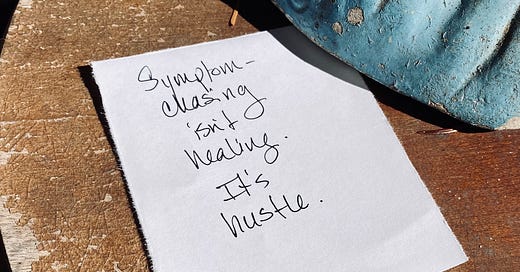 Symptom-
chasing
isn't
healing.
It's
hustle.